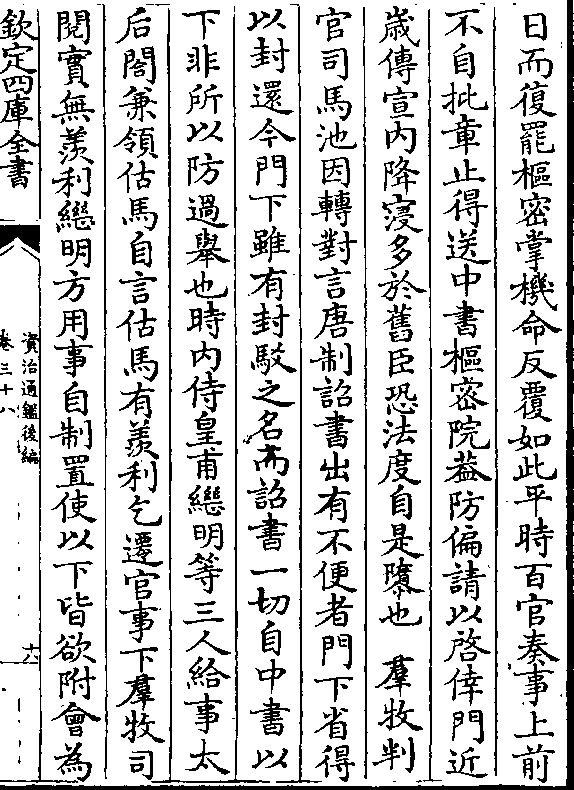 日而復罷樞密掌機命反覆如此平時百官奏事上前
不自批章止得送中書樞密院葢防偏請以啓倖門近
歲傳宣内降寖多於舊臣恐法度自是隳也　羣牧判
官司馬池因轉對言唐制詔書出有不便者門下省得
以封還今門下雖有封駁之名而詔書一切自中書以
下非所以防過舉也時内侍皇甫繼明等三人給事太
后閤兼領估馬自言估馬有羨利乞遷官事下羣牧司
閱實無羨利繼明方用事自制置使以下皆欲附會為
欽定四庫全書
資治通鑑後編
卷三十八
十六